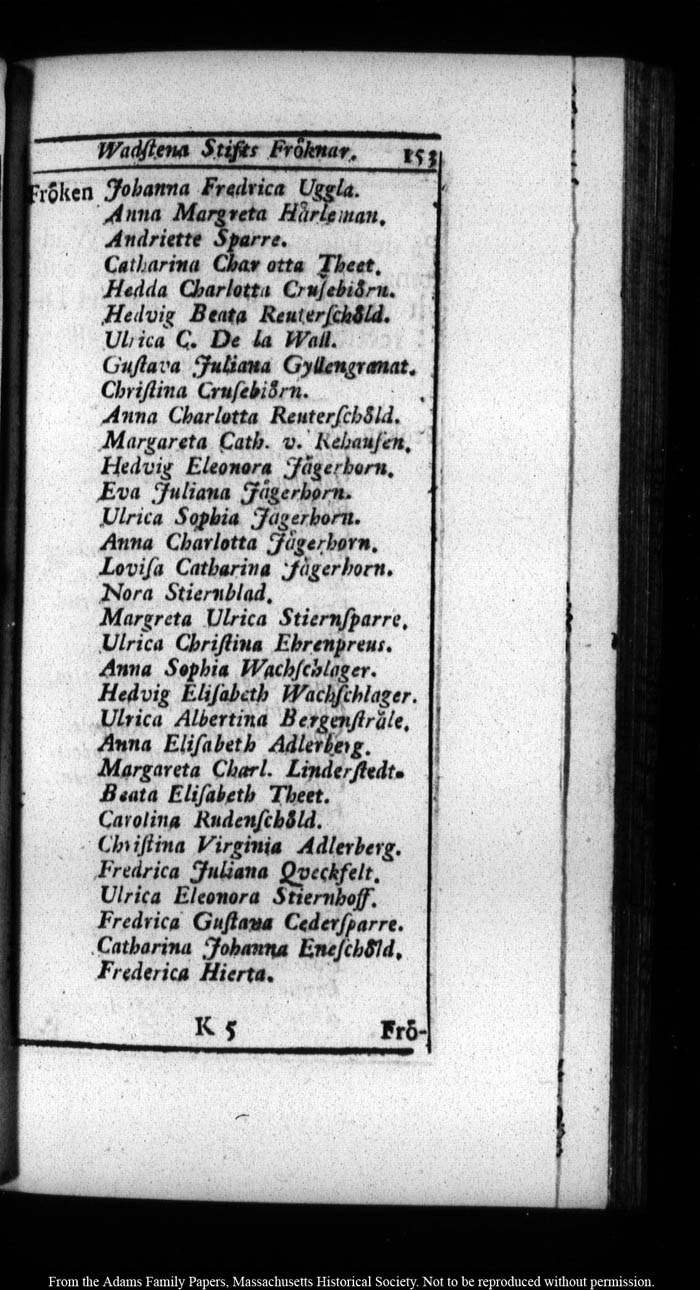 Wadſtena Stifts Frôknar. 153
Frôken Johanna Fredrica Uggla.
Anna Margreta Hårleman.
Andriette Sparre.
Catharina Char otta Theet.
Hedda Charlotta Cruſebiôrn.
Hedvig Beata Reuterſchôld.
Ulrica C. De la Wall.
Guſtava Juliana Gyllengranat.
Chriſtina Cruſebiôrn.
Anna Charlotta Reuterſchôld.
Margareta Cath. v. Kehauſen.
Hedvig Eleonora Jågerhorn.
Eva Juliana Jågerhorn.
Ulrica Sophia Jagerhorn.
Anna Charlotta Jågerhorn.
Loviſa Catharina Jågerhorn.
Nora Stiernblad.
Margreta Ulrica Stiernſparre.
Ulrica Chriſtina Ehrenpreus.
Anna Sophia Wachſchlager.
Hedvig Eliſabeth Wachſchlager.
Ulrica Albertina Bergenſtråle.
Anna Eliſabeth Adlerberg.
Margareta Charl. Linderſtedt.
Beata Eliſabeth Theet.
Carolina Rudenſchôld.
Chriſtina Virginia Adlerberg.
Fredrica Juliana Qveckfelt.
Ulrica Eleonora Stiernhoff.
Fredrica Guſtava Cederſparre.
Catharina Johanna Eneſchôld.
Frederica Hierta.
K 5 Frô-
From the Adams Family Papers, Massachusetts Historical Society. Not to be reproduced without permission.